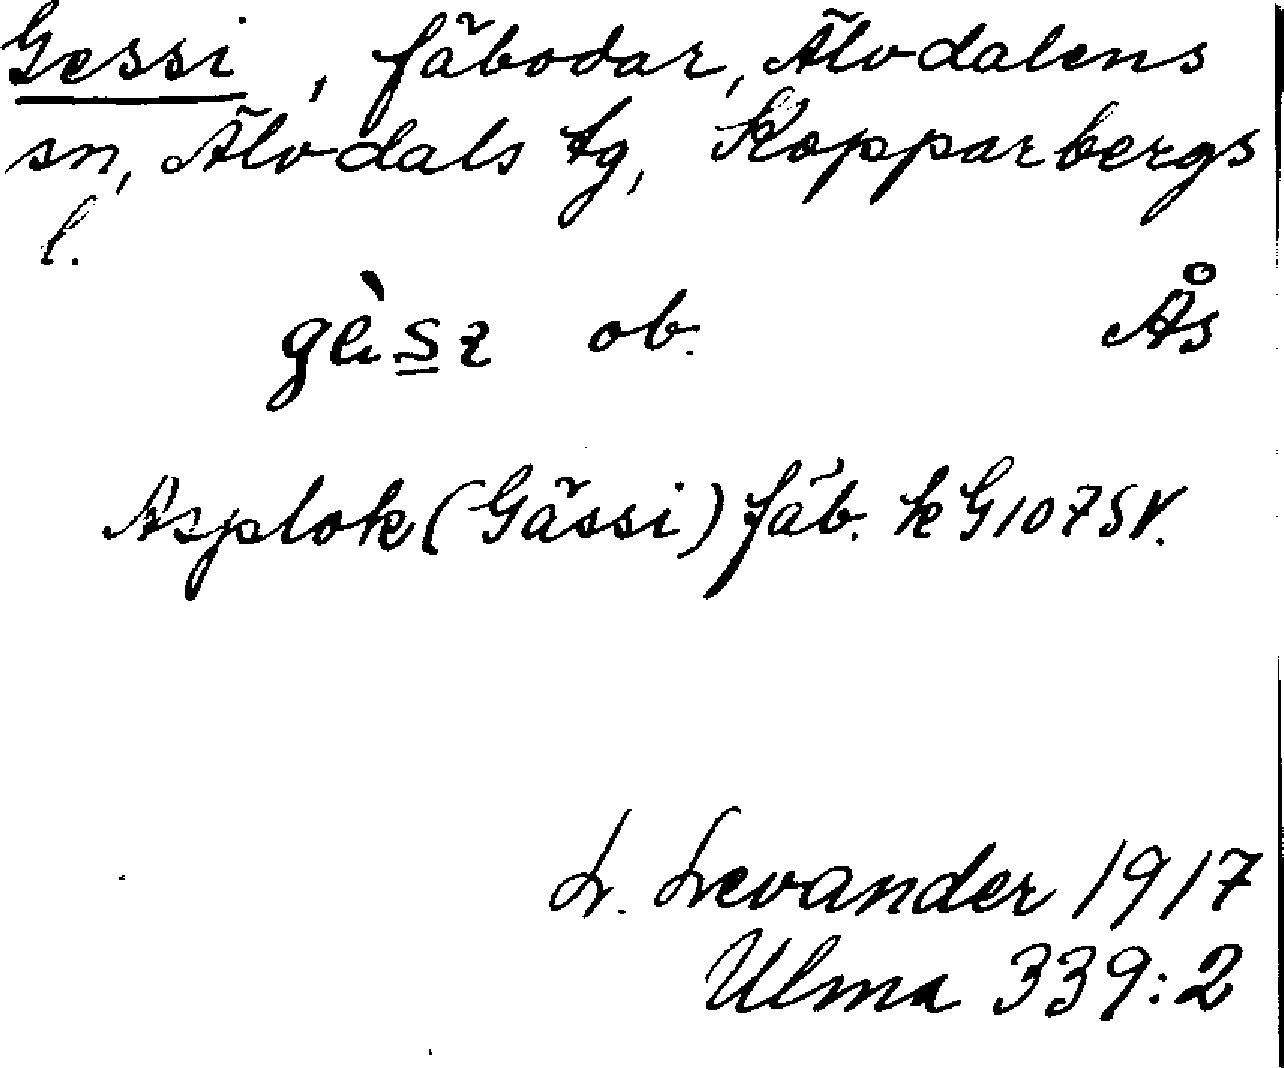 Gessi, fäbodar, Älvdalens
sn, Älvdals tg, Kopparbergs
l.
gès̳ɪ ob. Ås
Asplok (Gässi) fäb. k G107SV.
L. Levander 1917
Ulma 339:2